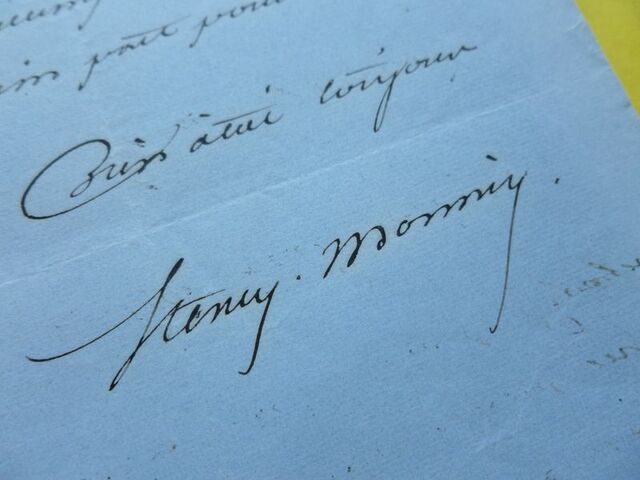 part pour
Bien à toi toujours
Henry. Monnier.